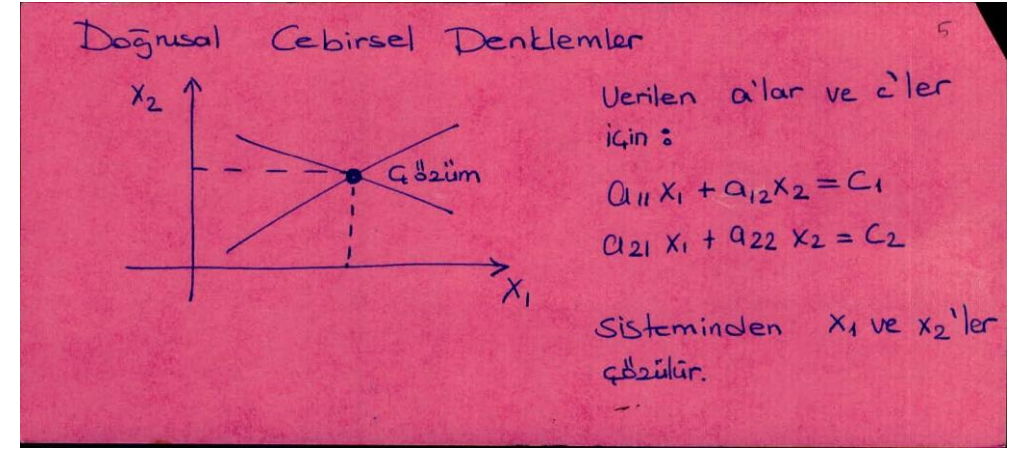 5
Doğrusal Cebirsel Denklemler
x₂
Çözüm
x₁
Verilen a'lar ve c'ler
için :
a₁₁ x₁ + a₁₂ x₂ = c₁
a₂₁ x₁ + a₂₂ x₂ = c₂
sisteminden x₁ ve x₂'ler
çözülür.